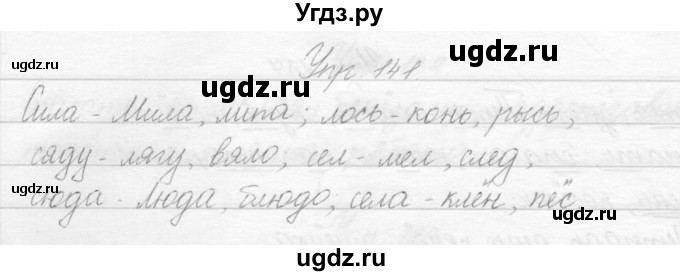 Угдз.ру
Упр. 141.
ugdz.ru
ugdz.ru
ugdz.ru
Сила - Мила, липа; лось - конь, рысь;
сяду - лягу, вяло; сел - мел, след;
ugdz.ru
ugdz.ru
сюда - Люда, блюдо, села - клён, пёс
ugdz.ru
ugdz.ru